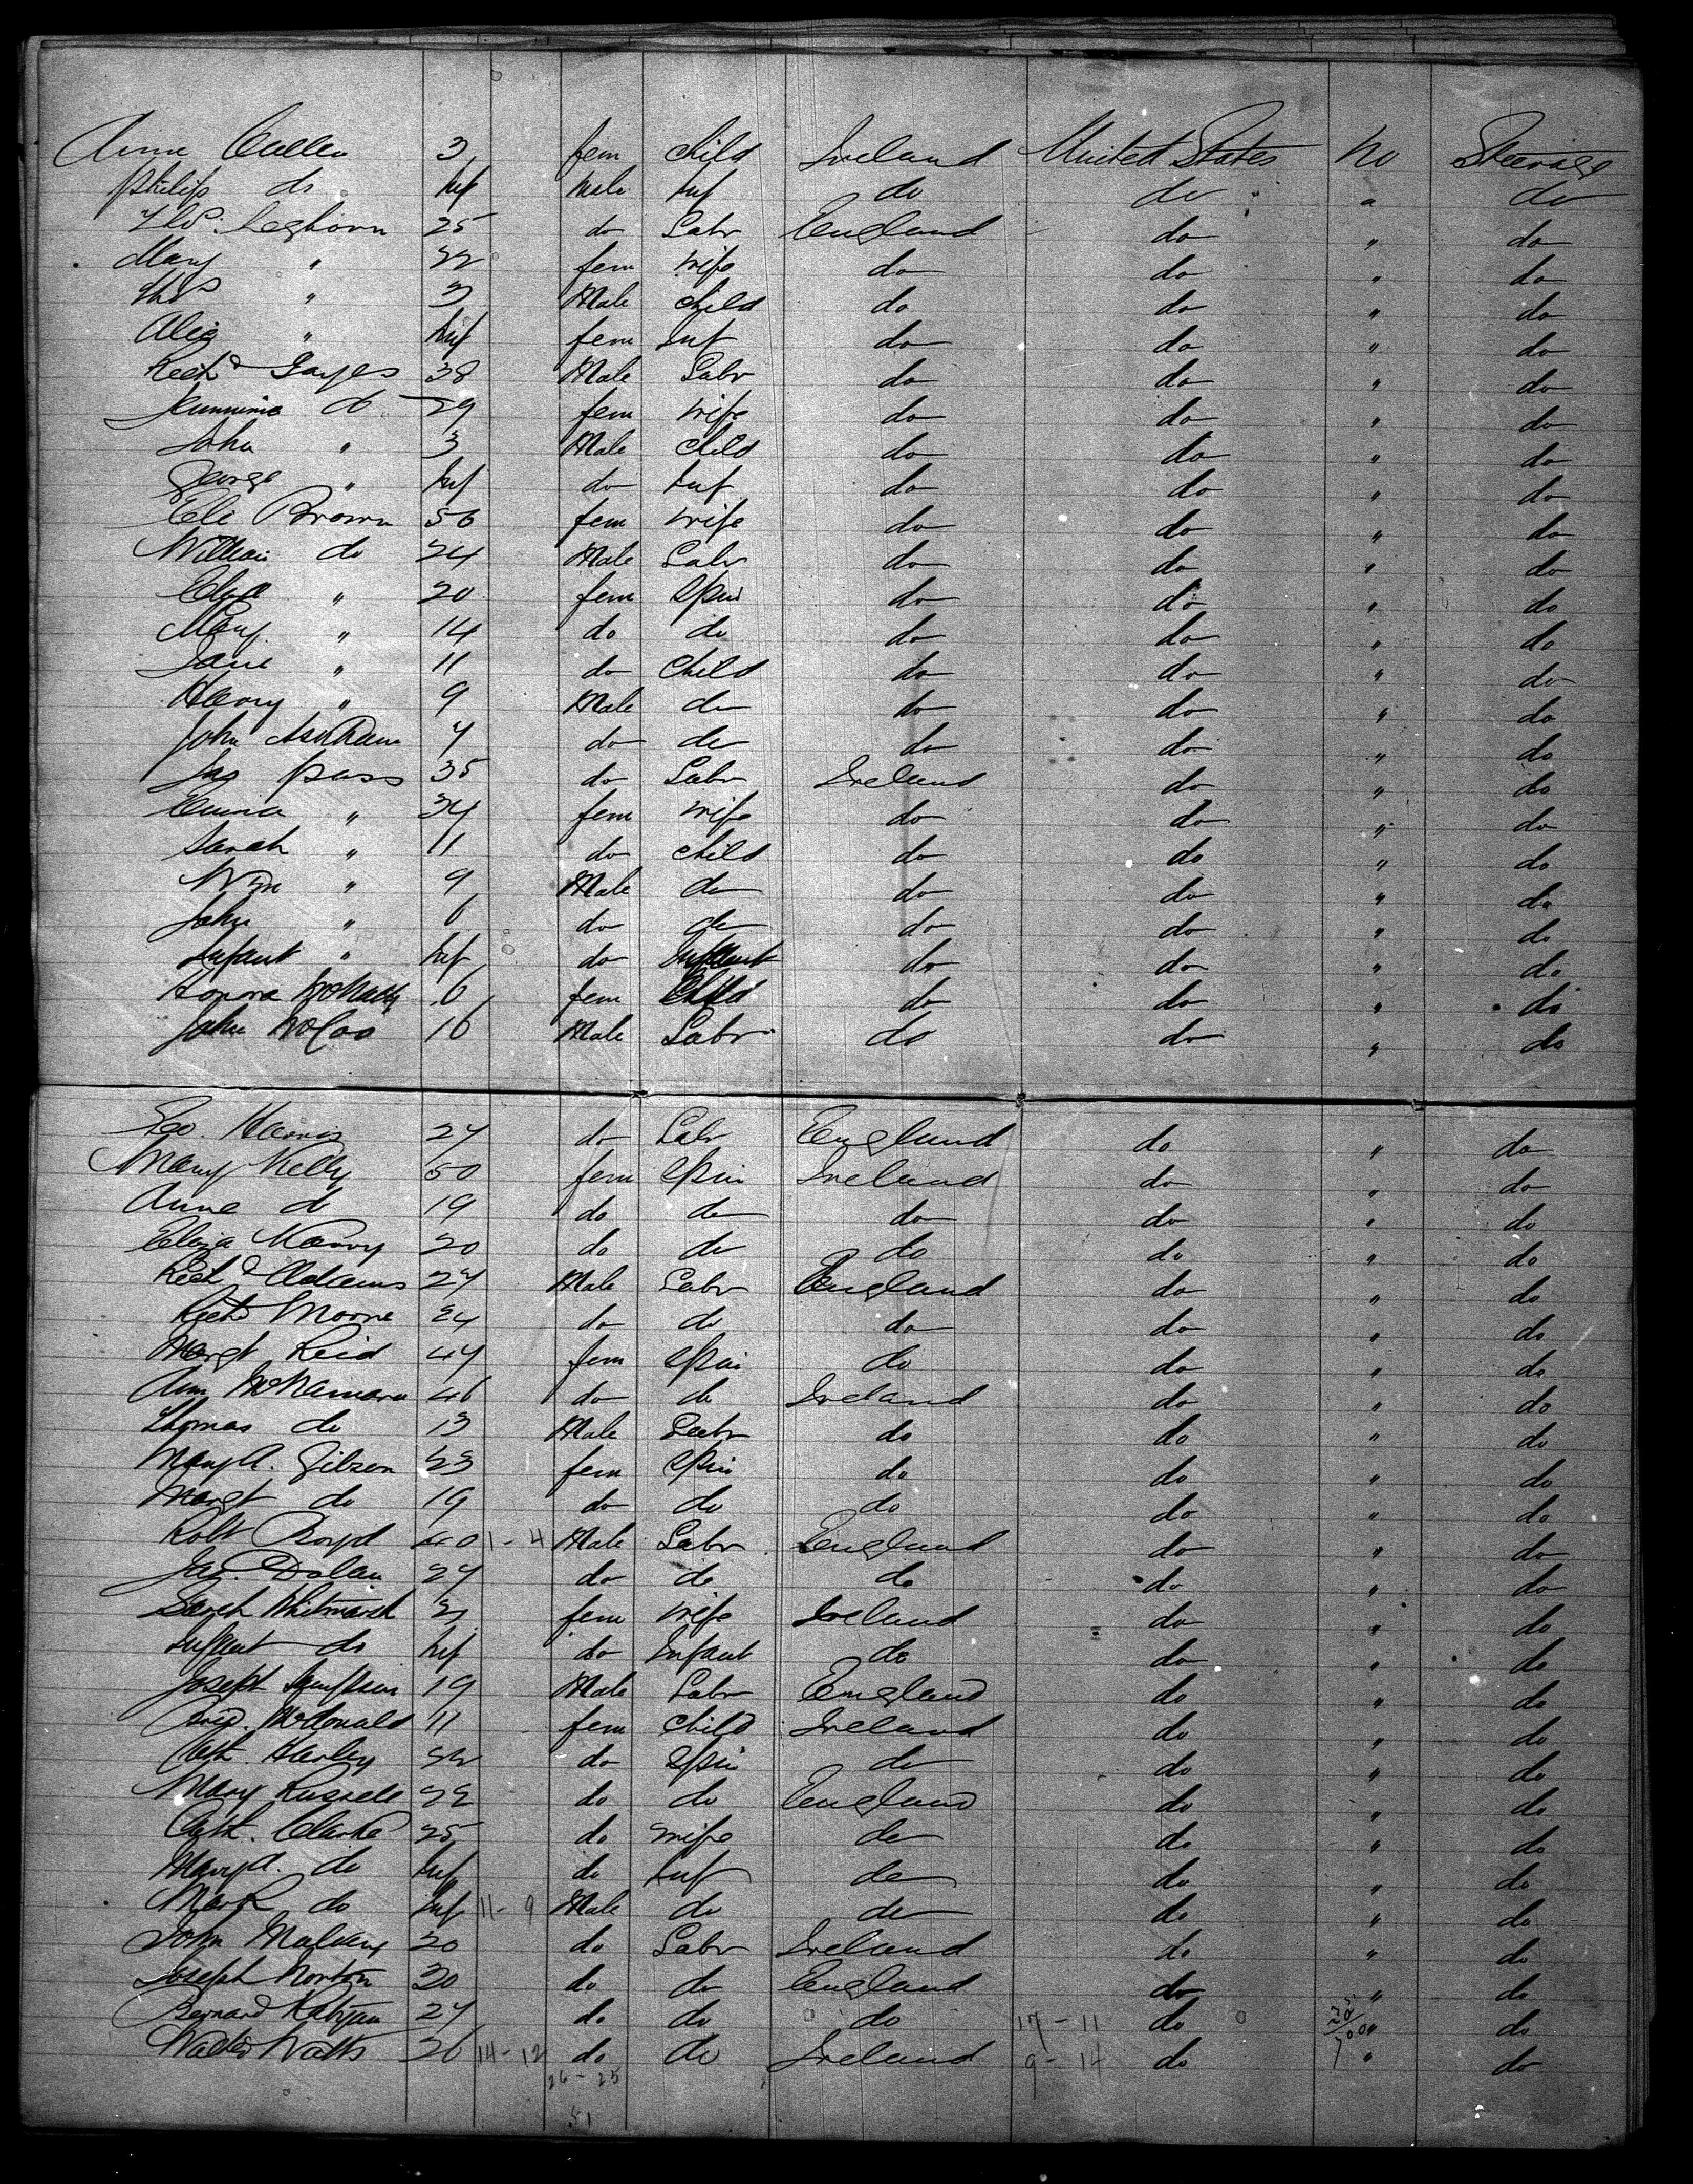 Anne Cullen 3 fem child Ireland United States no Steerage
Philip do Inf Male Inf do do " do
Thos. Leghorn 25 do Labr England do " do
Mary " 22 fem wife do do " do
Thos " 3 Male child do do " do
Alice " Inf fem Inf do do " do
Richd Gayes 38 Male Labr do do " do
do 29 fem wife do do " do
John " 3 Male child do do " do
George " Inf do Inf do do " do
Brown 56 fem wife do do " do
William do 24 Male Labr do do " do
Eliza " 20 fem Spin do do " do
Mary " 14 do do do do " do
Jane " 11 do Child do do " do
Henry " 9 Male do do do " do
John 4 do do do do " do
Jas Pass 35 do Labr Ireland do " do
" 34 fem wife do do " do
Sarah " 11 do child do do " do
Wm " 9 Male do do do " do
John " 6 do do do do " do
Infant " Inf do Infant do do " do
Honora McNally 6 fem Child do do " do
John 16 Male Labr do do " do
Geo. Harris 24 do Labr England do " do
Mary Kelly 50 fem Spin Ireland do " do
Anne do 19 do do do do " do
Eliza 20 do do do do " do
Richd Adams 24 Male Labr England do " do
Richd Moore 24 do do do do " do
Margt Reid 44 fem Spin do do " do
Ann McNamara 46 do do Ireland do " do
Thomas do 13 Male Labr do do " do
Mary A. Gibson 23 fem Spin do do " do
Margt do 19 do do do do " do
Robt Boyd 40 1-4 Male Labr England do " do
Jas. Dolan 24 do do do do " do
Sarah Whitmarsh fem wife Ireland do " do
Infant do Inf do Infant do do " do
Joseph Simpson 19 Male Labr England do " do
McDonald 11 fem child Ireland do " do
Cath. Harley 22 do Spin do do " do
Mary Russell 22 do do England do " do
Cath. Clarke 25 do wife do do " do
Mary A. do Inf do Inf do do " do
Mark do Inf 11-9 Male do do do " do
John Mulvany 20 do Labr Ireland do " do
Joseph Norton 30 do do England do " do
Bernard 24 do do do 17-11 do " do
Walter Watts 26 14-12 do do Ireland 9-14 do " do
26-25
51